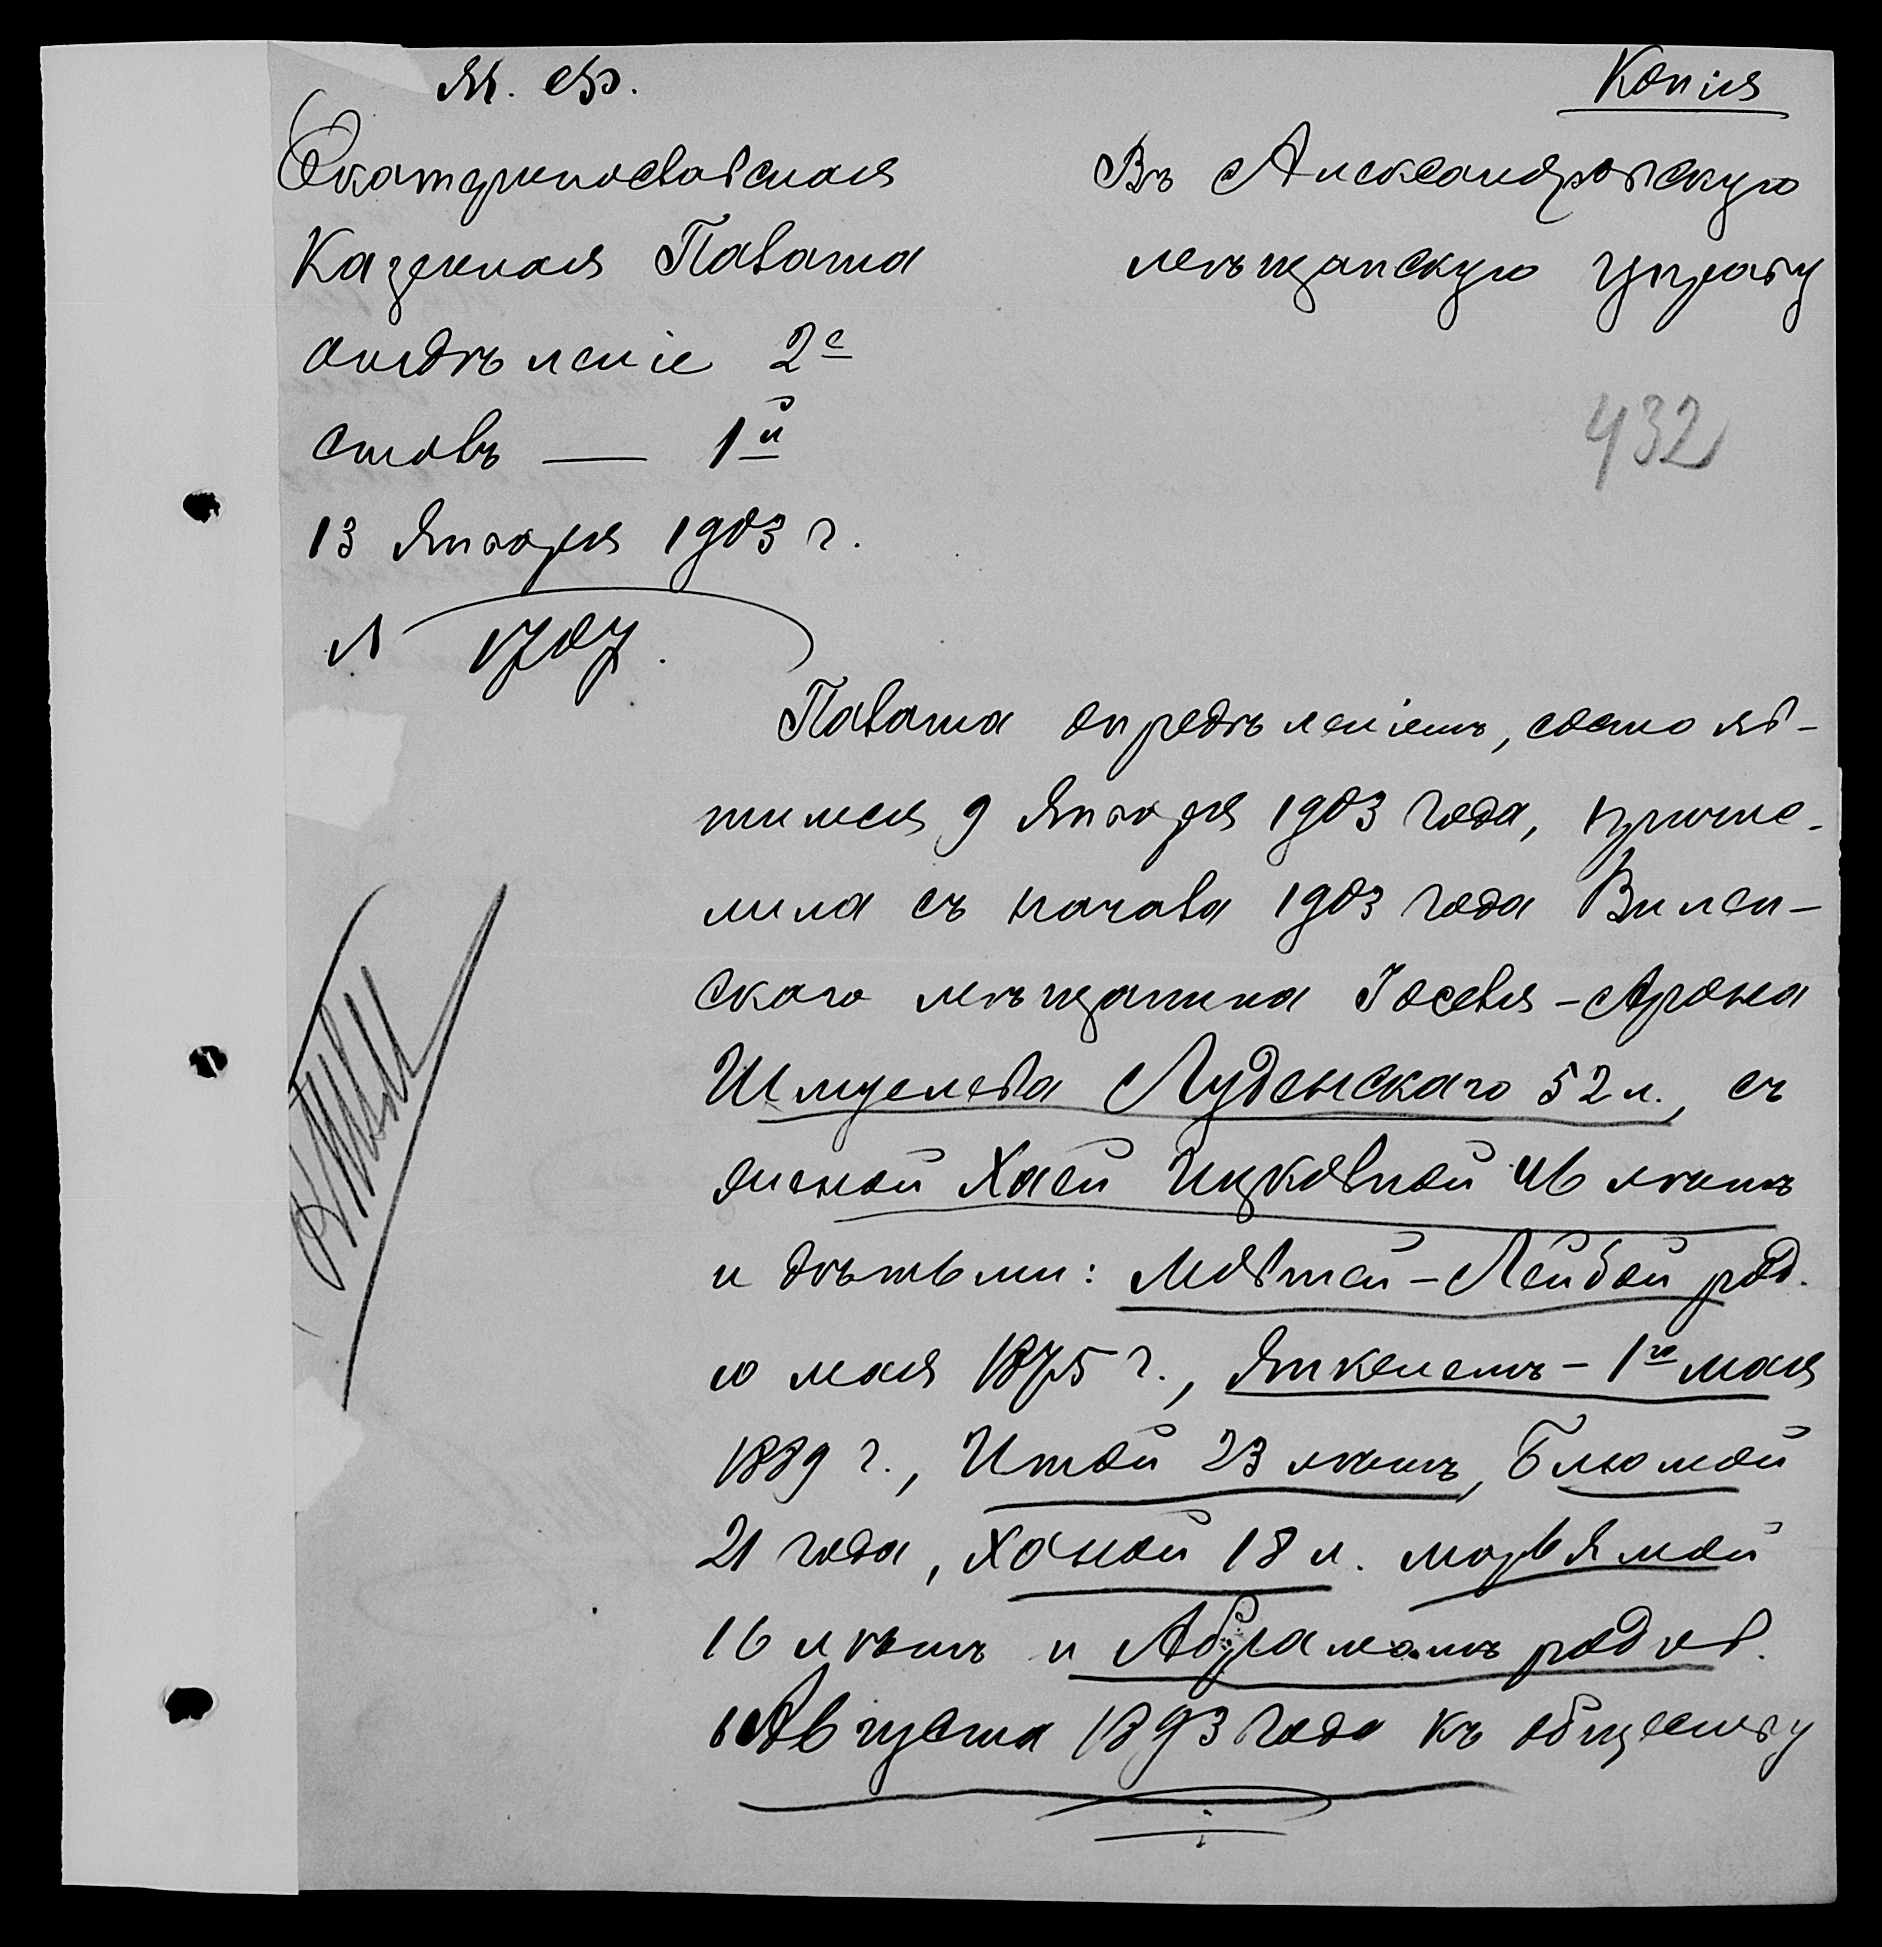 М. Ф.
Копія
Екатеринославская
Казенная Палата
отдѣленіе 2е
столъ — 1й
13 Января 1903 г.
№ 1707.
Въ Александровскую
мѣщанскую управу
432
Палата опредѣленіемъ, состояв-
шимся 9 Января 1903 года, причис-
лила съ начала 1903 года Вилен-
скаго мѣщанина Іоселя-Арона
Шмуелева Луденскаго 52 л., съ
женой Хаей Ицковной 46 лѣтъ
и дѣтьми: Мовшей-Лейбой род.
10 мая 1875 г., Янкелемъ - 1го мая
1889 г., Итой 23 лѣтъ, Блюмой
21 года, Ханой 18 л. Марьямой
16 лѣтъ и Абрамомъ родив.
6 Августа 1893 года къ обществу